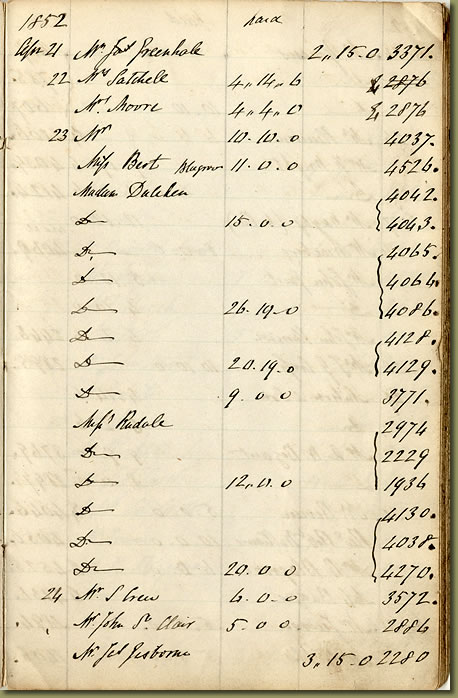 1852 paid
Apr 21 Mr Jas Greenhale 2,,15.0 3371.
22 Mrs Satchell 4,,14,,6 & 2876
Mrs Moore 4,,4,,0 & 2876
23 Mrs 10.10.0 4037.
Miss Best 11.0.0 4526.
Madam Dulcken 4042.
Do 15.0.0 4043.
Do 4065.
Do 4064.
Do 26.19.0 4086.
Do 4128.
Do 20.19.0 4129.
Do 9.0.0 3771.
Messrs Rudall 2974
Do 2229
Do 12,,0.0 1936
Do 4130.
Do 4038.
Do 20.0.0 4270.
24 Mr S Crew 6.0.0 3572.
Mr John St Clair 5.0.0 2886
Mr Jas Gisborne 3,,15.0 2280